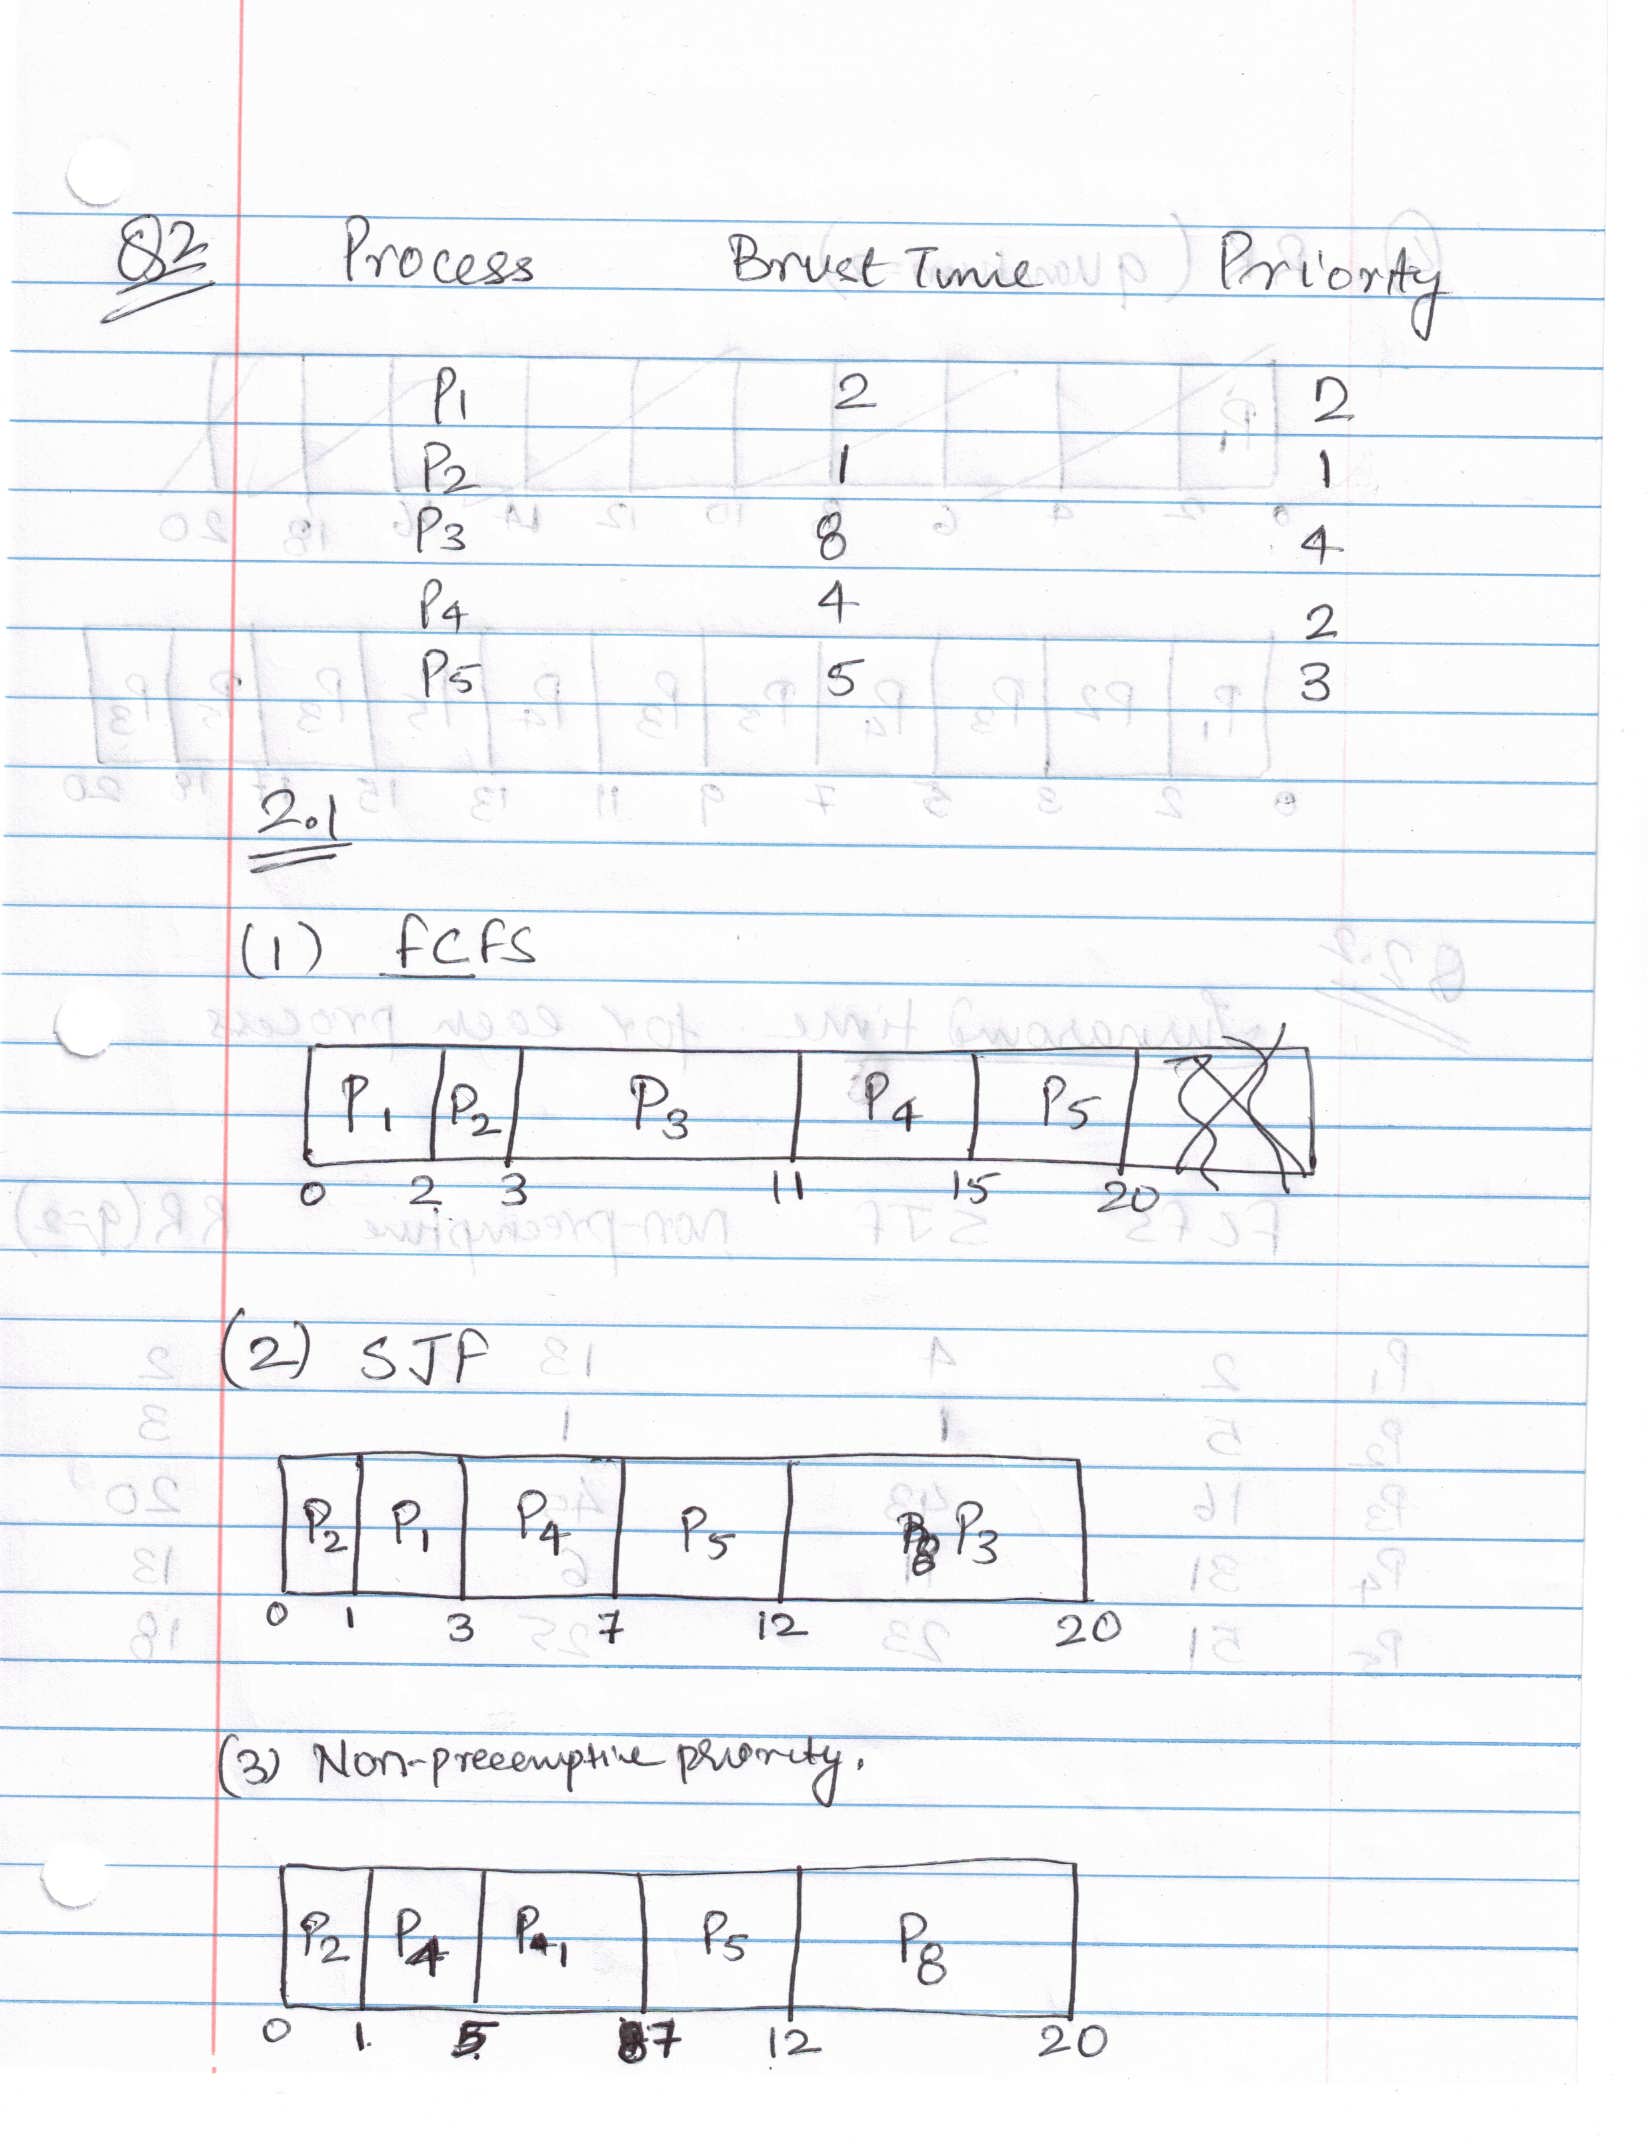 Q2 Process Brust Time Priority
P1 2 2
P2 1 1
P3 8 4
P4 4 2
P5 5 3
2.1
(1) FCFS
P1 P2 P3 P4 P5
0 2 3 11 15 20
(2) SJF
P2 P1 P4 P5 P3
0 1 3 7 12 20
(3) Non-preeemptive priority.
P2 P4 P1 P5 P8
0 1 5 7 12 20